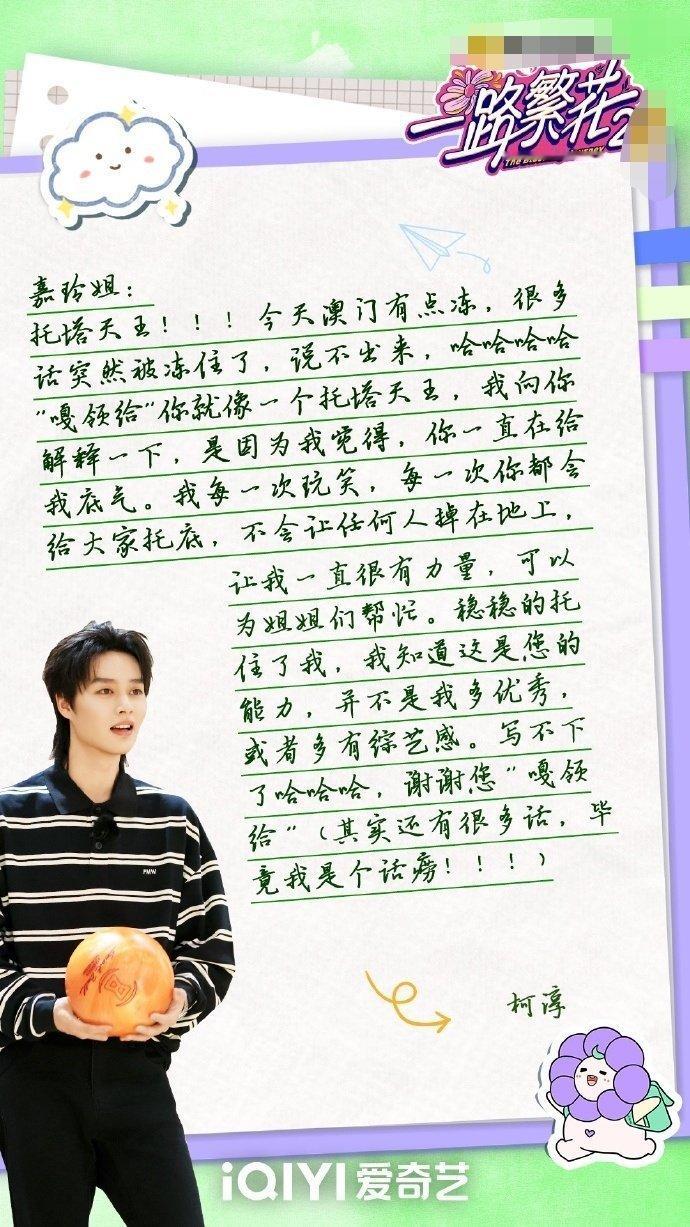 一路繁花2
嘉玲姐：
托塔天王！！！今天澳门有点冻，很多
话突然被冻住了，说不出来，哈哈哈哈
“嘎领给”你就像一个托塔天王，我向你
解释一下，是因为我觉得，你一直在给
我底气。我每一次玩笑，每一次你都会
给大家托底，不会让任何人掉在地上，
让我一直很有力量，可以
为姐姐们帮忙。稳稳的托
住了我，我知道这是您的
能力，并不是我多优秀，
或者多有综艺感。写不下
了哈哈哈，谢谢您“嘎领
给”（其实还有很多话，毕
竟我是个话痨！！！）
柯淳
iQIYI 爱奇艺